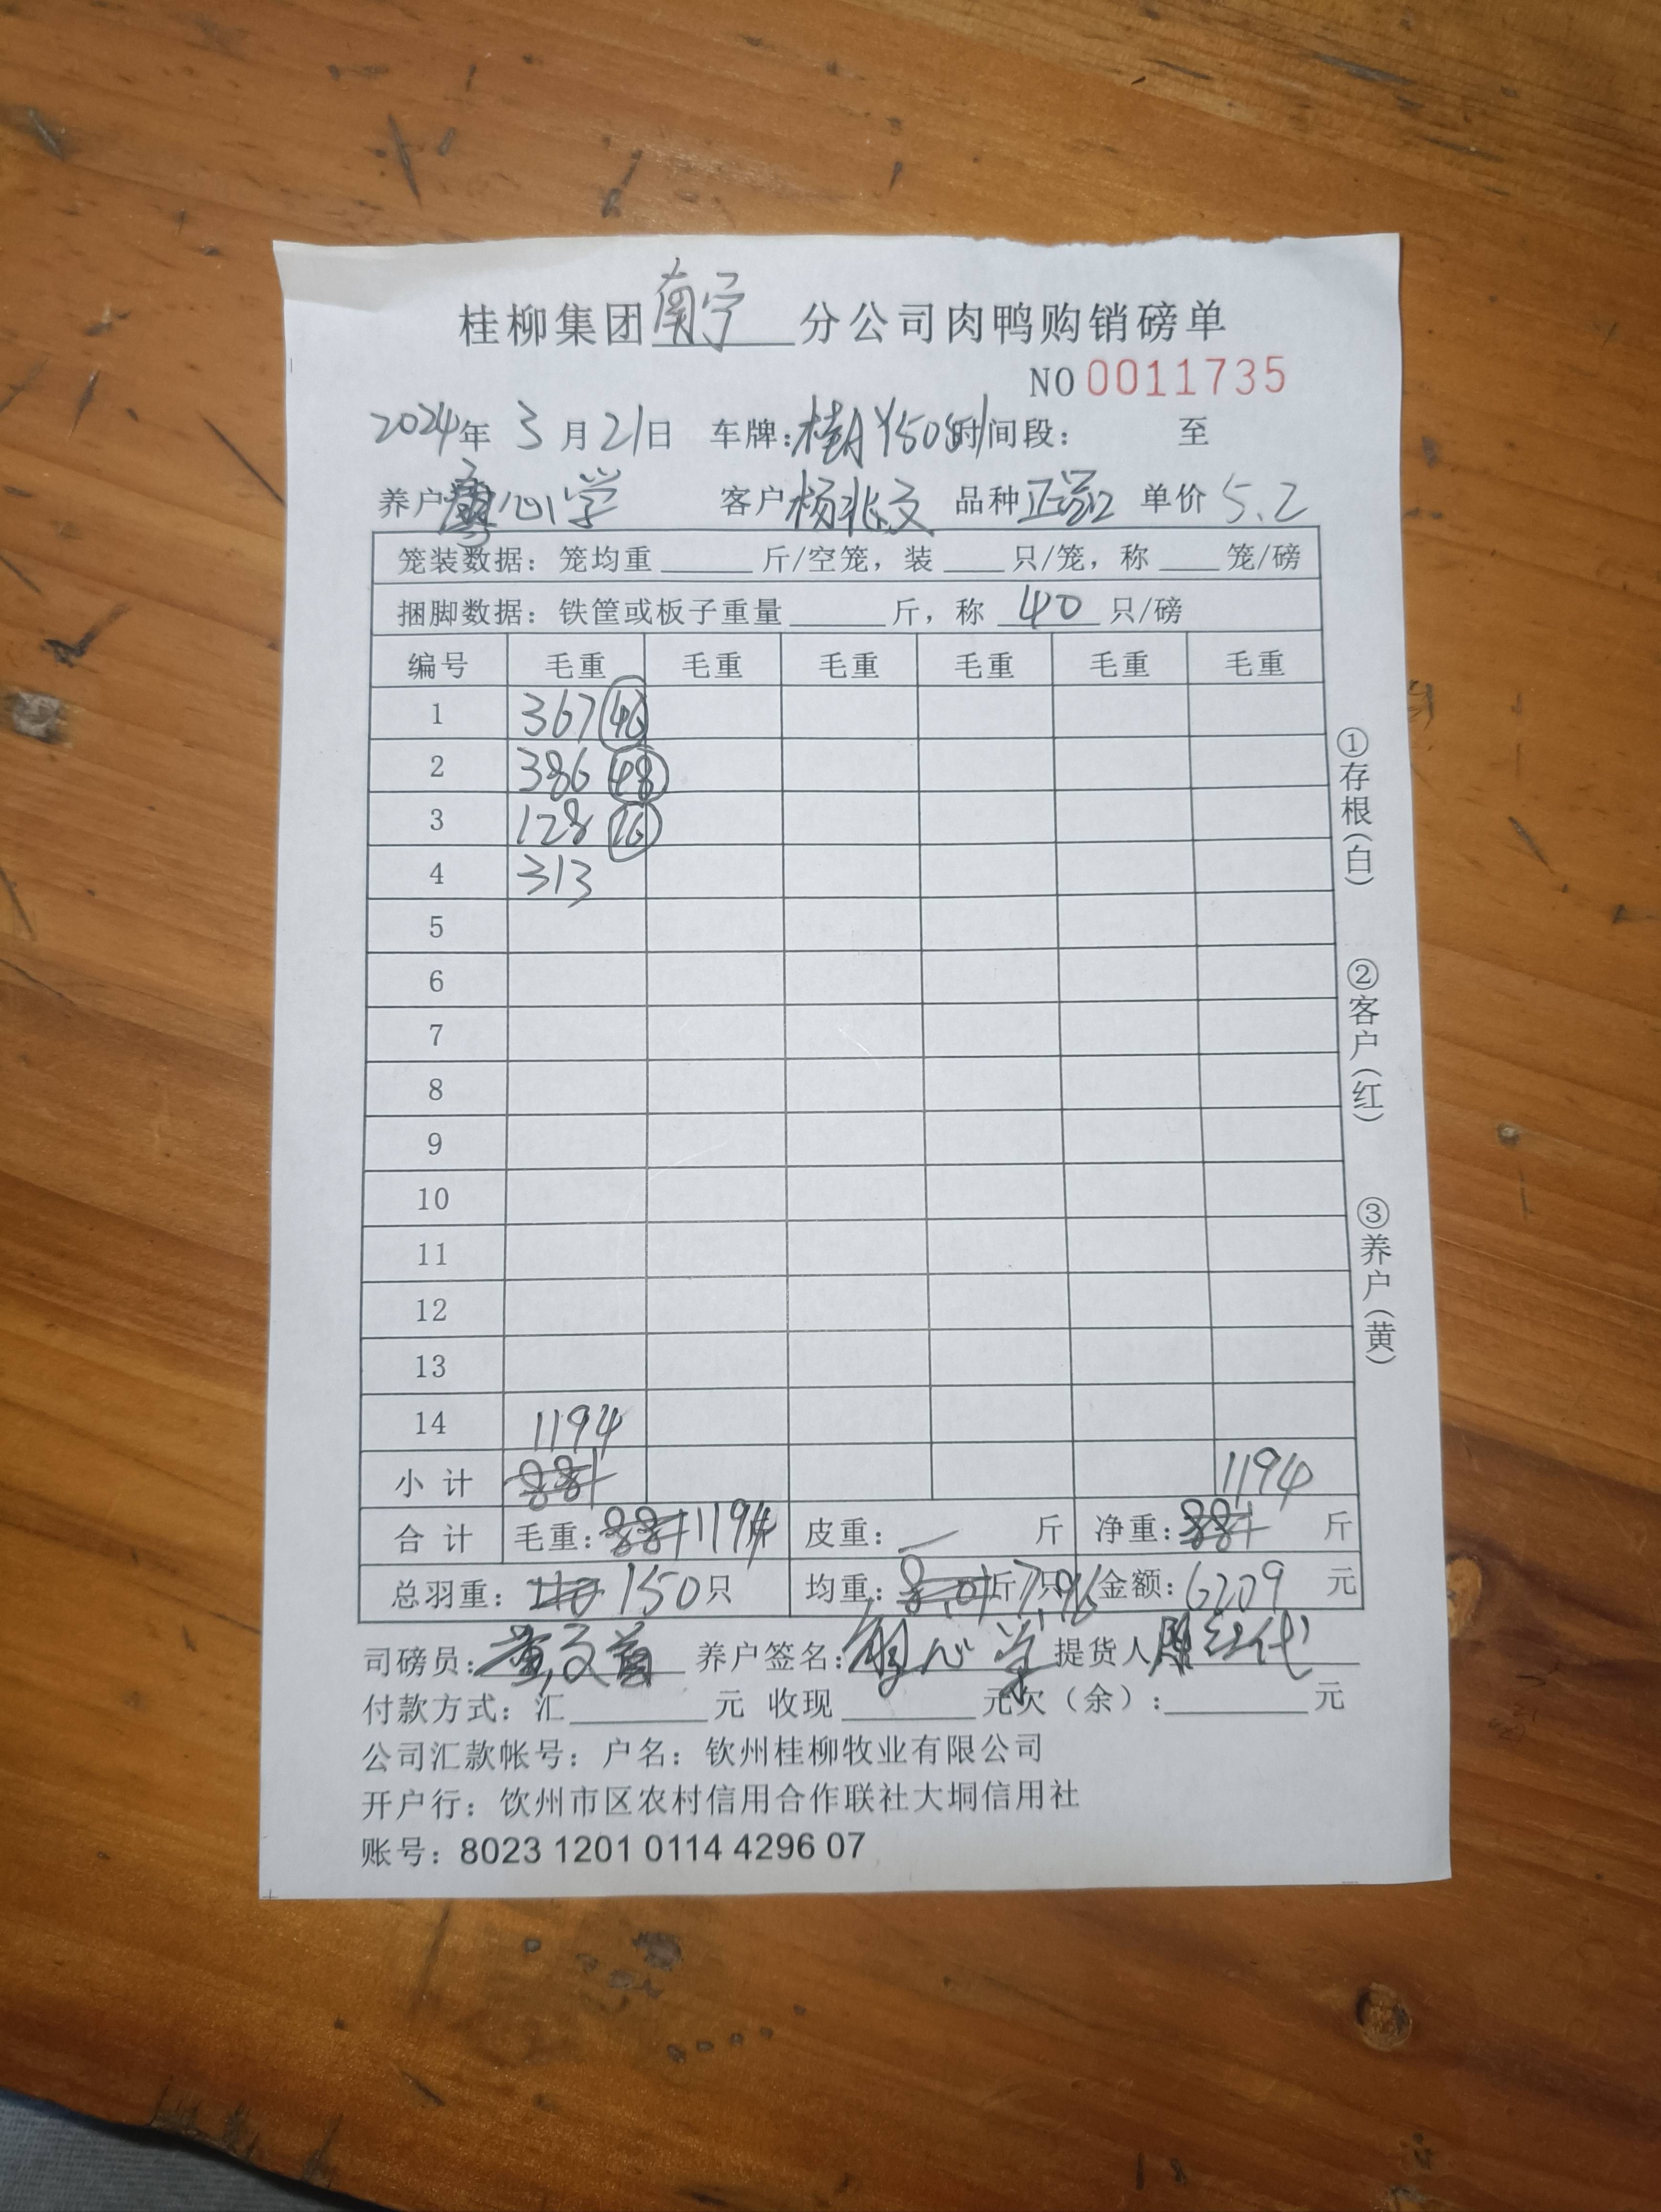 桂柳集团南宁分公司肉鸭购销磅单
NO 0011735
2024年 3月21日 车牌: 时间段: 至
养户 心学 客户 杨兆文 品种 单价 5.2
笼装数据: 笼均重 斤/空笼, 装 只/笼, 称 笼/磅
捆脚数据: 铁筐或板子重量 斤, 称 40 只/磅
编号 毛重 毛重 毛重 毛重 毛重 毛重
1 367 46
2 386 48
3 128 16
4 313
5
6
7
8
9
10
11
12
13
14 1194
小计 881 1194
合计 毛重: 881 1194 皮重: 斤 净重: 881 斤
总羽重: 110 150只 均重: 8.01 斤/只 7.96 金额: 6209 元
司磅员: 养户签名: 心学 提货人
付款方式: 汇 元 收现 元欠(余): 元
公司汇款帐号: 户名: 钦州桂柳牧业有限公司
开户行: 钦州市区农村信用合作联社大垌信用社
账号: 8023 1201 0114 4296 07
①存根(白)
②客户(红)
③养户(黄)